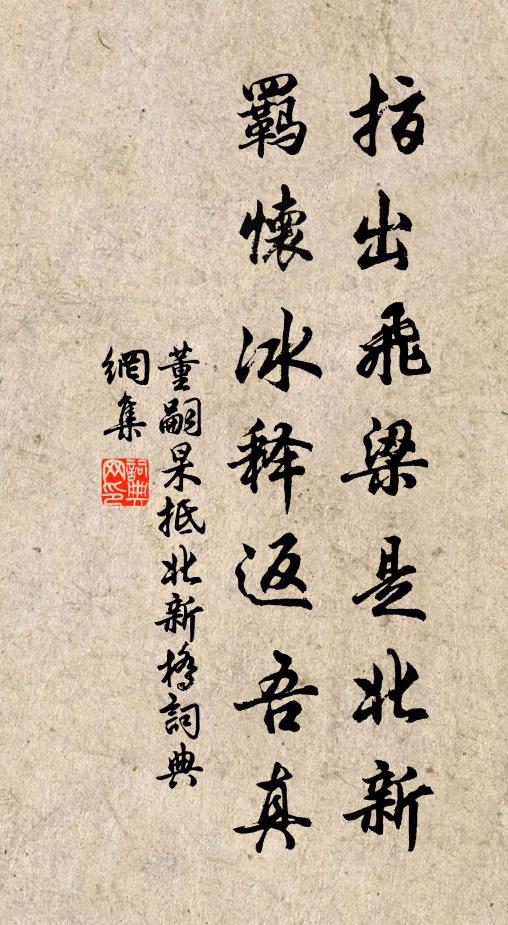 指出飛梁是北新
羈懷冰释返吾真
董嗣杲抵北新橋詞典
網集
詞典
网印